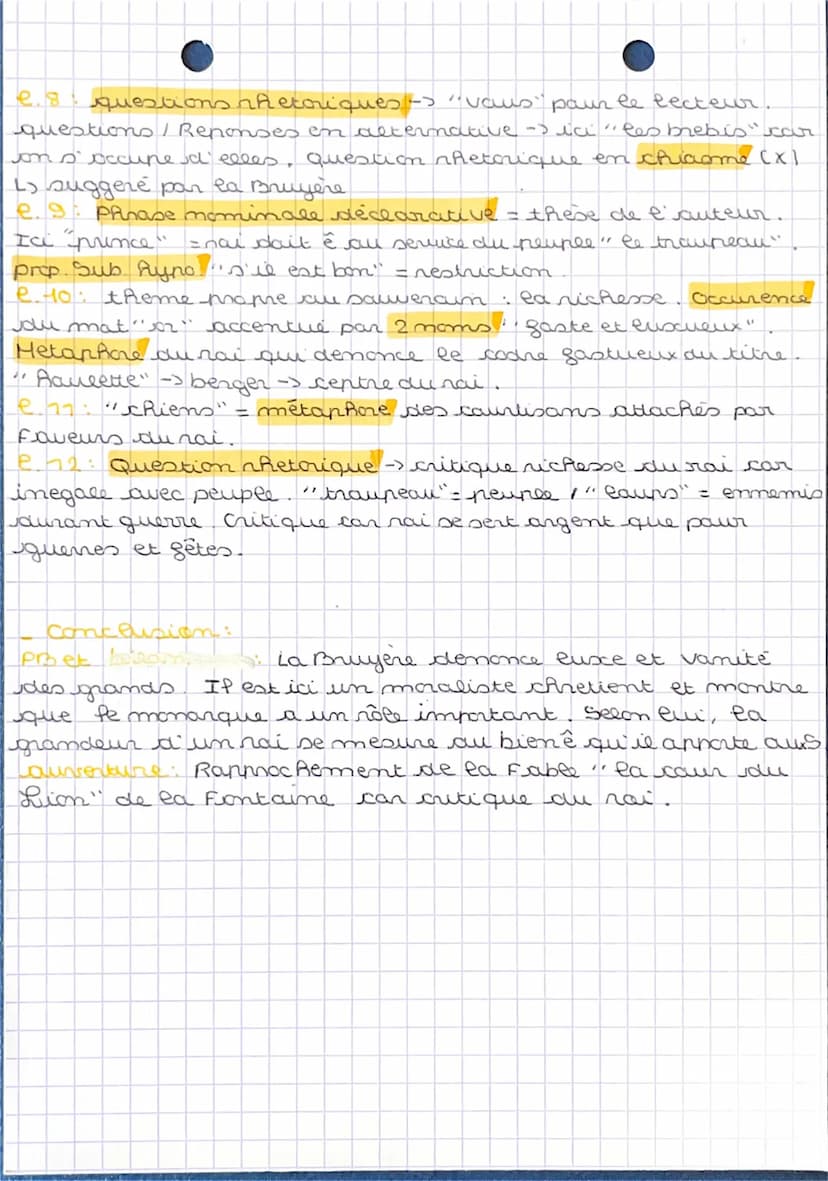 l.8 : questions rhetoriques -> "vous" pour le lecteur.
questions / Reponses en alternative -> ici "les brebis" car
on s'occupe d'elles. question rhetorique en chiasme (X)
↳ suggeré par la Bruyère
l.9 : Phrase nominale déclarative = thèse de l'auteur.
Ici "prince" = roi doit ê au service du peuple "le troupeau".
prop. Sub. Hypo "s'il est bon" = restriction.
l.10 : theme propre au souverain : la richesse. Occurence
du mot "or" accentué par 2 noms : "faste et luxueux".
Metaphore du roi qui denonce le cadre fastueux du titre.
"Houlette" -> berger -> sceptre du roi.
l.11 : "chiens" = métaphore des courtisans attachés par
Faveurs du roi.
l.12 : Question rhetorique -> critique richesse du roi car
inegale avec peuple. "troupeau" = peuple / "loups" = ennemis
durant guerre. Critique car roi se sert argent que pour
guerres et fêtes.
- Conclusion :
PB et : La Bruyère denonce luxe et vanité
des grands. Il est ici un moraliste chretient et montre
que le monarque a un rôle important. Selon lui, la
grandeur d'un roi se mesure au bienê qu'il apporte aux S
ouverture : Rapprochement de la Fable "la cour du
Lion" de la Fontaine car critique du roi.